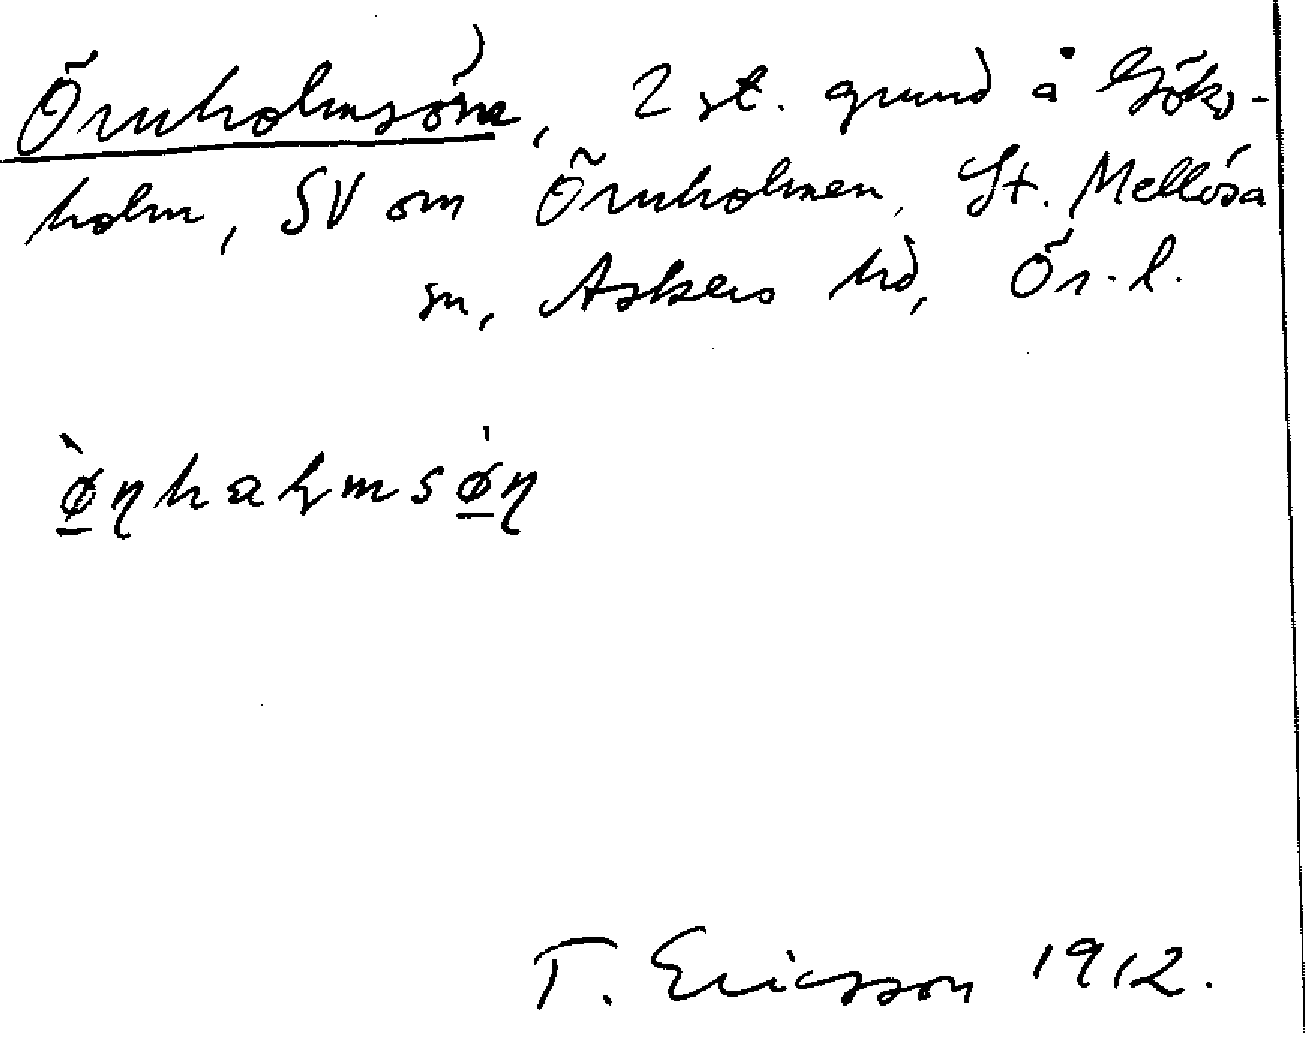 Örnholmsörn, 2 st. grund å Göks-
holm, SV om Örnholmen, St. Mellösa
sn, Askers hd, Ör. l.
T. Ericsson 1912.